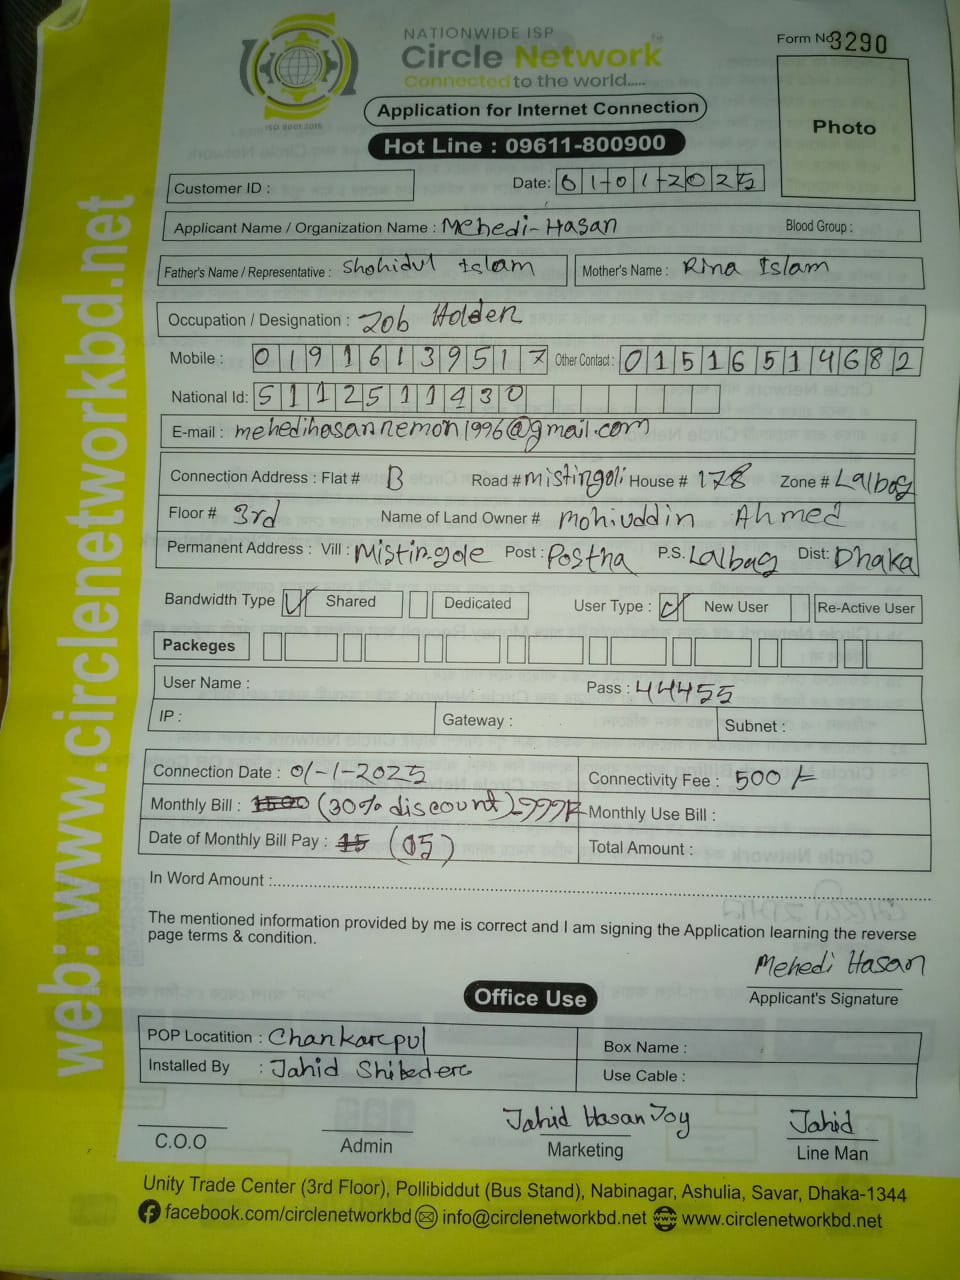 NATIONWIDE ISP
Circle Network
Connected to the world.....
ISO 9001:2015
Form No 3290
Application for Internet Connection
Hot Line : 09611-800900
Photo
Customer ID :
Date: 01-01-2025
Applicant Name / Organization Name : Mehedi-Hasan Blood Group :
Father's Name / Representative : Shohidul Islam Mother's Name : Rina Islam
Occupation / Designation : Job Holder
Mobile : 01916139517 Other Contact : 01516514682
National Id: 5112511430
E-mail : mehedihasannemon1996@gmail.com
Connection Address : Flat # B Road # mistingoli House # 178 Zone # Lalbag
Floor # 3rd Name of Land Owner # Mohiuddin Ahmed
Permanent Address : Vill : Mistingole Post : Postha P.S. Lalbag Dist: Dhaka
Bandwidth Type Shared Dedicated User Type : New User Re-Active User
Packeges
User Name : Pass : 44455
IP : Gateway : Subnet :
Connection Date : 01-1-2025 Connectivity Fee : 500/-
Monthly Bill : 1500 (30% discount) - 999/- Monthly Use Bill :
Date of Monthly Bill Pay : 15 (05) Total Amount :
In Word Amount :
The mentioned information provided by me is correct and I am signing the Application learning the reverse
page terms & condition.
Mehedi Hasan
Applicant's Signature
Office Use
POP Locatition : Chankarpul Box Name :
Installed By : Jahid Use Cable :
Jahid Hasan Joy Jahid
C.O.O Admin Marketing Line Man
Unity Trade Center (3rd Floor), Pollibiddut (Bus Stand), Nabinagar, Ashulia, Savar, Dhaka-1344
facebook.com/circlenetworkbd info@circlenetworkbd.net www.circlenetworkbd.net
web: www.circlenetworkbd.net